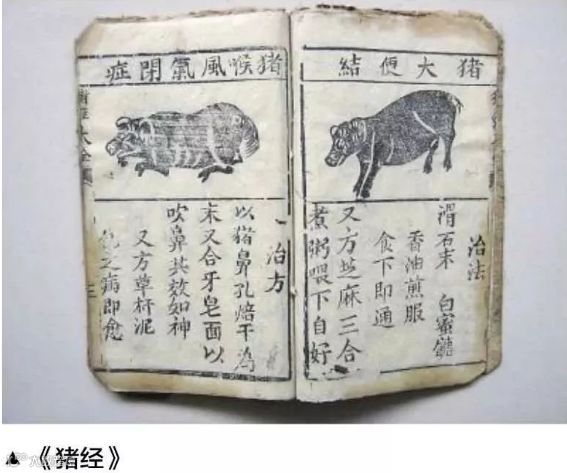 猪大便結
治法
滑石末 白蜜
香油煎服
食下即通
又方芝麻三合
煮粥喂下自好
猪喉風氣閉症
一治方
以猪鼻孔焙干為
末又合牙皂面以
吹鼻其效如神
又方草杆泥
之病即愈
大全
《猪经》